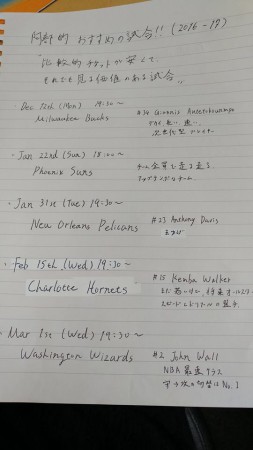 阿部的 おすすめの試合!! (2016-17)
"比較的チケットが安くて、
それでも見る価値のある試合"
・Dec 12th (Mon) 19:30~
Milwaukee Bucks
#34 Giannis Antetokounmpo
・Jan 22nd (Sun) 18:00~
Phoenix Suns
チーム全員で走る走る
アップテンポなチーム。
・Jan 31st (Tue) 19:30~
New Orleans Pelicans
#23 Anthony Davis
・Feb 15th (Wed) 19:30~
Charlotte Hornets
#15 Kemba Walker
・Mar 1st (Wed) 19:30~
Washington Wizards
#2 John Wall
NBA 最速クラス
No.1